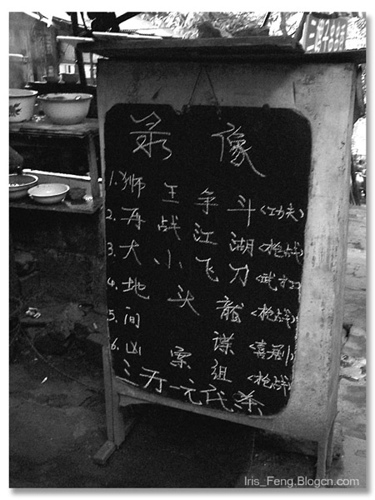 录像
1. 狮王争斗 <功夫>
2. 再战江湖 <枪战>
3. 大小飞刀 <武打>
4. 地头龙 <枪战>
5. 间谍 <喜剧>
6. 凶案组 <枪战>
三一元代茶
Iris_Feng.Blogcn.com